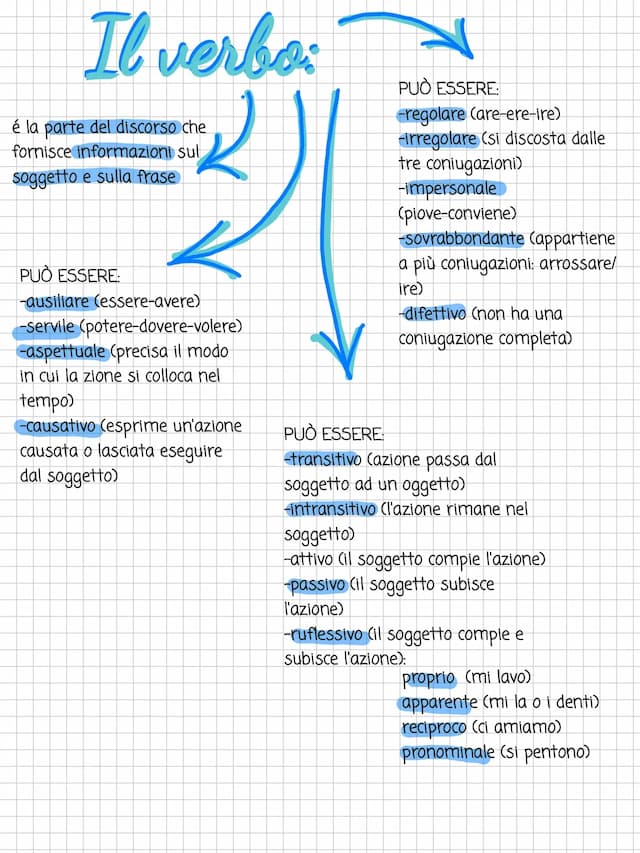 Il verbo:
é la parte del discorso che
fornisce informazioni sul
soggetto e sulla frase
PUÒ ESSERE:
-ausiliare (essere-avere)
-servile (potere-dovere-volere)
-aspettuale (precisa il modo
in cui la zione si colloca nel
tempo)
-causativo (esprime un'azione
causata o lasciata eseguire
dal soggetto)
PUÒ ESSERE:
-transitivo (azione passa dal
soggetto ad un oggetto)
-intransitivo (l'azione rimane nel
soggetto)
-attivo (il soggetto compie l'azione)
-passivo (il soggetto subisce
l'azione)
-ruflessivo (il soggetto compie e
subisce l'azione):
proprio (mi lavo)
apparente (mi la o i denti)
reciproco (ci amiamo)
pronominale (si pentono)
PUÒ ESSERE:
-regolare (are-ere-ire)
-irregolare (si discosta dalle
tre coniugazioni)
-impersonale
(piove-conviene)
-sovrabbondante (appartiene
a più coniugazioni: arrossare/
ire)
-difettivo (non ha una
coniugazione completa)